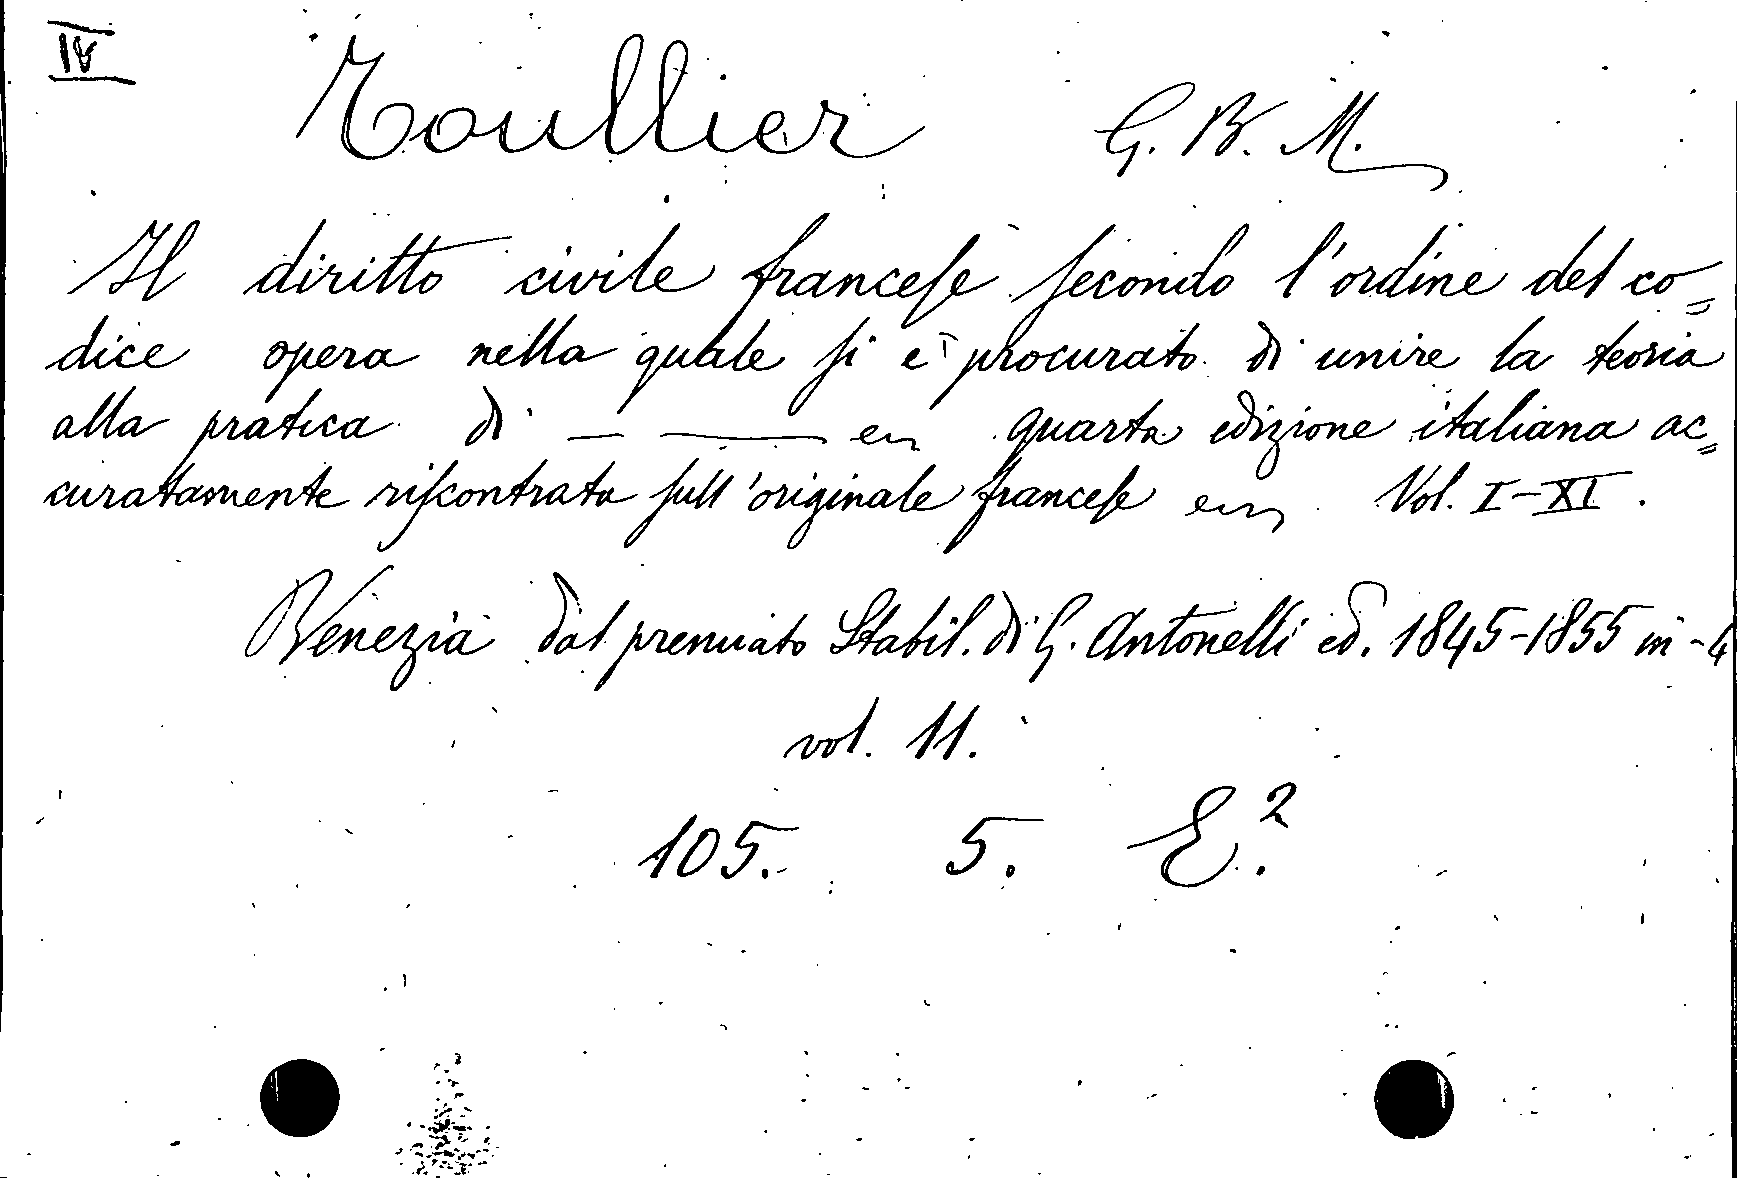 IV
Toullier G. B. M.
Il diritto civile francese secondo l'ordine del co=
dice opera nella quale si è procurato di unire la teoria
alla pratica di — —— quarta edizione italiana ac=
curatamente riscontrata sull'originale francese Vol. I-XI.
Venezia dal premiato Stabil. di G. Antonelli ed. 1845-1855 in-4
vol. 11.
105. 5. E.²